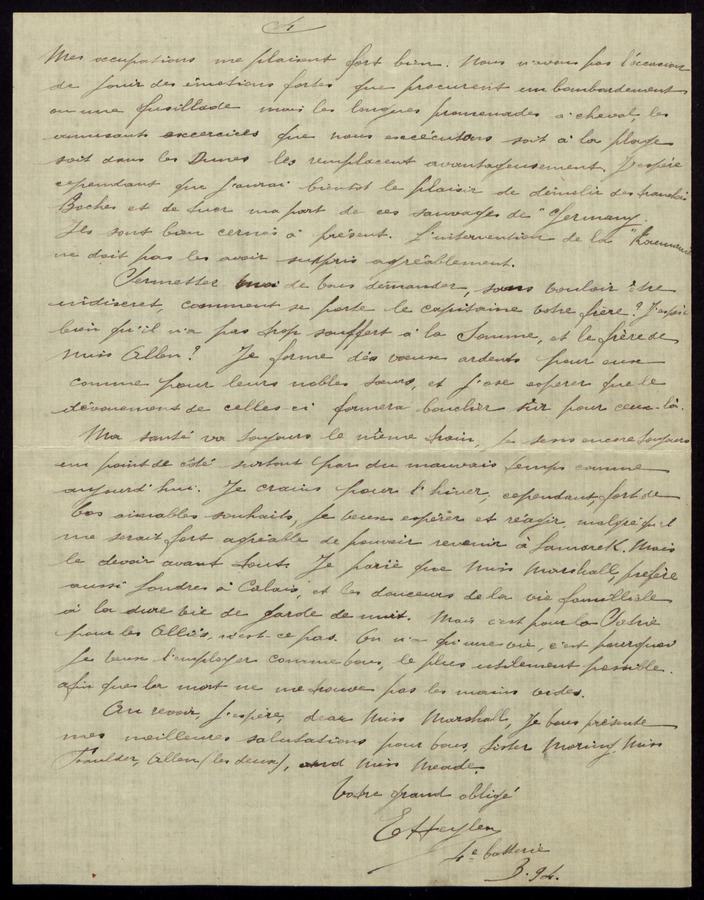 4
Mes occupations me plaisent fort bien. Nous n'avons pas l'occasion
de jouir des émotions fortes que procurent un bombardement
ou une fusillade mais les longues promenades à cheval, les
amusants excercices que nous exécutons soit à la plage
soit dans les Dunes les remplacent avantageusement. J'espère
cependant que j'aurai bientôt le plaisir de démolir des tranchées
Boches et de tuer ma part de ces sauvages de "Germany.
Ils sont bien cernés à présent. L'intervention de la "Roumanie
ne doit pas les avoir surpris agréablement.
Permetter moi de vous demander, sans vouloir être
indiscret, comment se porte le capitaine votre frère? J'espère
bien qu'il n'a pas trop souffert à la Somme, et le frère de
Miss Allen? Je forme des vœux ardents pour eux
comme pour leurs nobles sœurs, et j'ose espérer que le
dévouement de celles-ci formera bouclier sûr pour ceux-là.
Ma santé va toujours le même train, je sens encore toujours
un point de côté surtout par du mauvais temps comme
aujourd'hui. Je crains pour l'hiver, cependant, fort de
vos aimables souhaits, je veux espérer et réagir, malgré qu'il
me serait fort agréable de pouvoir revenir à Lamarck. Mais
le devoir avant tout. Je parie que Miss Marshall, préfère
aussi Londres à Calais, et les douceurs de la vie familliale
à la dure vie de garde de nuit. Mais c'est pour la Patrie
pour les Alliés, n'est-ce pas. On n'a qu'une vie, c'est pourquoi
je veux l'employer comme vous, le plus utilement possible.
afin que la mort ne me trouve pas les mains vides.
Au revoir, j'espère, dear Miss Marshall, Je vous présente
mes meilleures salutations pour vous, Sister Miss
Allen (les deux), and Miss Meade.
Votre grand obligé
E Heylen
4e batterie
B. 94.